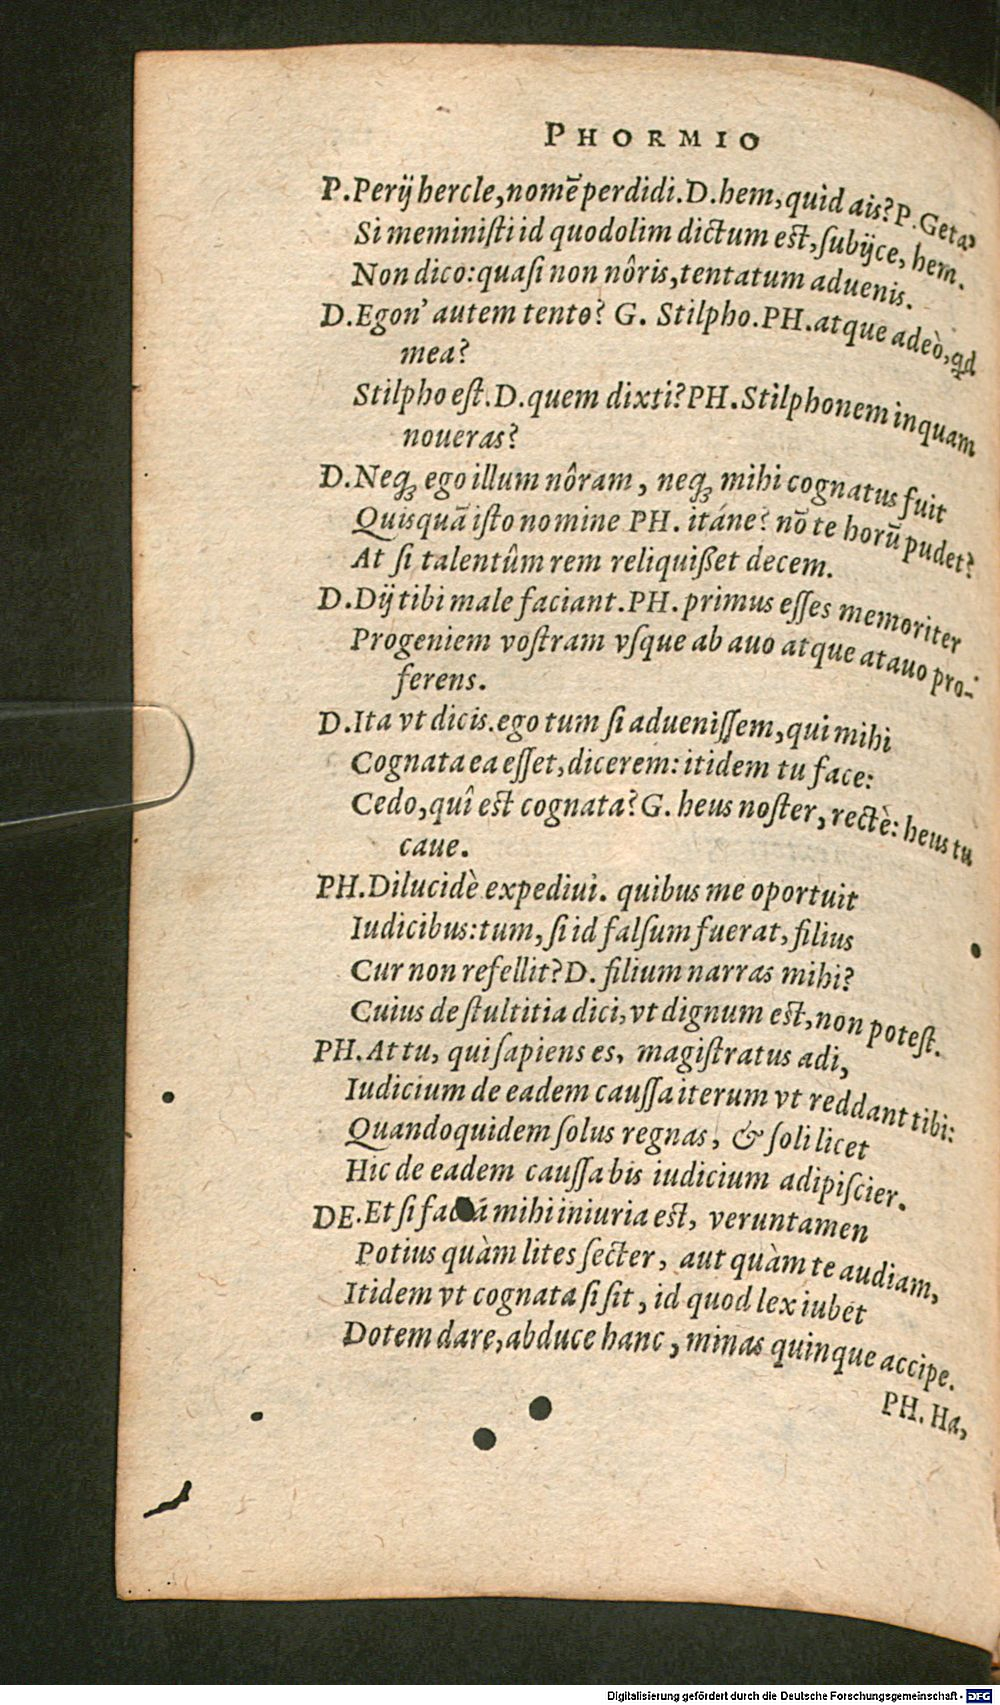 PHORMIO
P. Perij hercle, nomē perdidi. D. hem, quid ais? P. Geta,
Si meministi id quod olim dictum est, subijce, hem.
Non dico: quasi non nôris, tentatum aduenis.
D. Egon' autem tento? G. Stilpho. PH. atque adeò, qd
mea?
Stilpho est. D. quem dixti? PH. Stilphonem inquam
noueras?
D. Neq; ego illum nôram, neq; mihi cognatus fuit
Quisquā isto nomine PH. itáne? nō te horū pudet?
At si talentûm rem reliquißet decem.
D. Dij tibi male faciant. PH. primus esses memoriter
Progeniem vostram vsque ab auo atque atauo pro-
ferens.
D. Ita vt dicis. ego tum si aduenissem, qui mihi
Cognata ea esset, dicerem: itidem tu face:
Cedo, quî est cognata? G. heus noster, rectè: heus tu
caue.
PH. Dilucidè expediui. quibus me oportuit
Iudicibus: tum, si id falsum fuerat, filius
Cur non refellit? D. filium narras mihi?
Cuius de stultitia dici, vt dignum est, non potest.
PH. At tu, qui sapiens es, magistratus adi,
Iudicium de eadem caussa iterum vt reddant tibi:
Quandoquidem solus regnas, & soli licet
Hic de eadem caussa bis iudicium adipiscier.
DE. Etsi mihi iniuria est, veruntamen
Potius quàm lites secter, aut quàm te audiam,
Itidem vt cognata si sit, id quod lex iubet
Dotem dare, abduce hanc, minas quinque accipe.
PH. Ha,
Digitalisierung gefördert durch die Deutsche Forschungsgemeinschaft - DFG